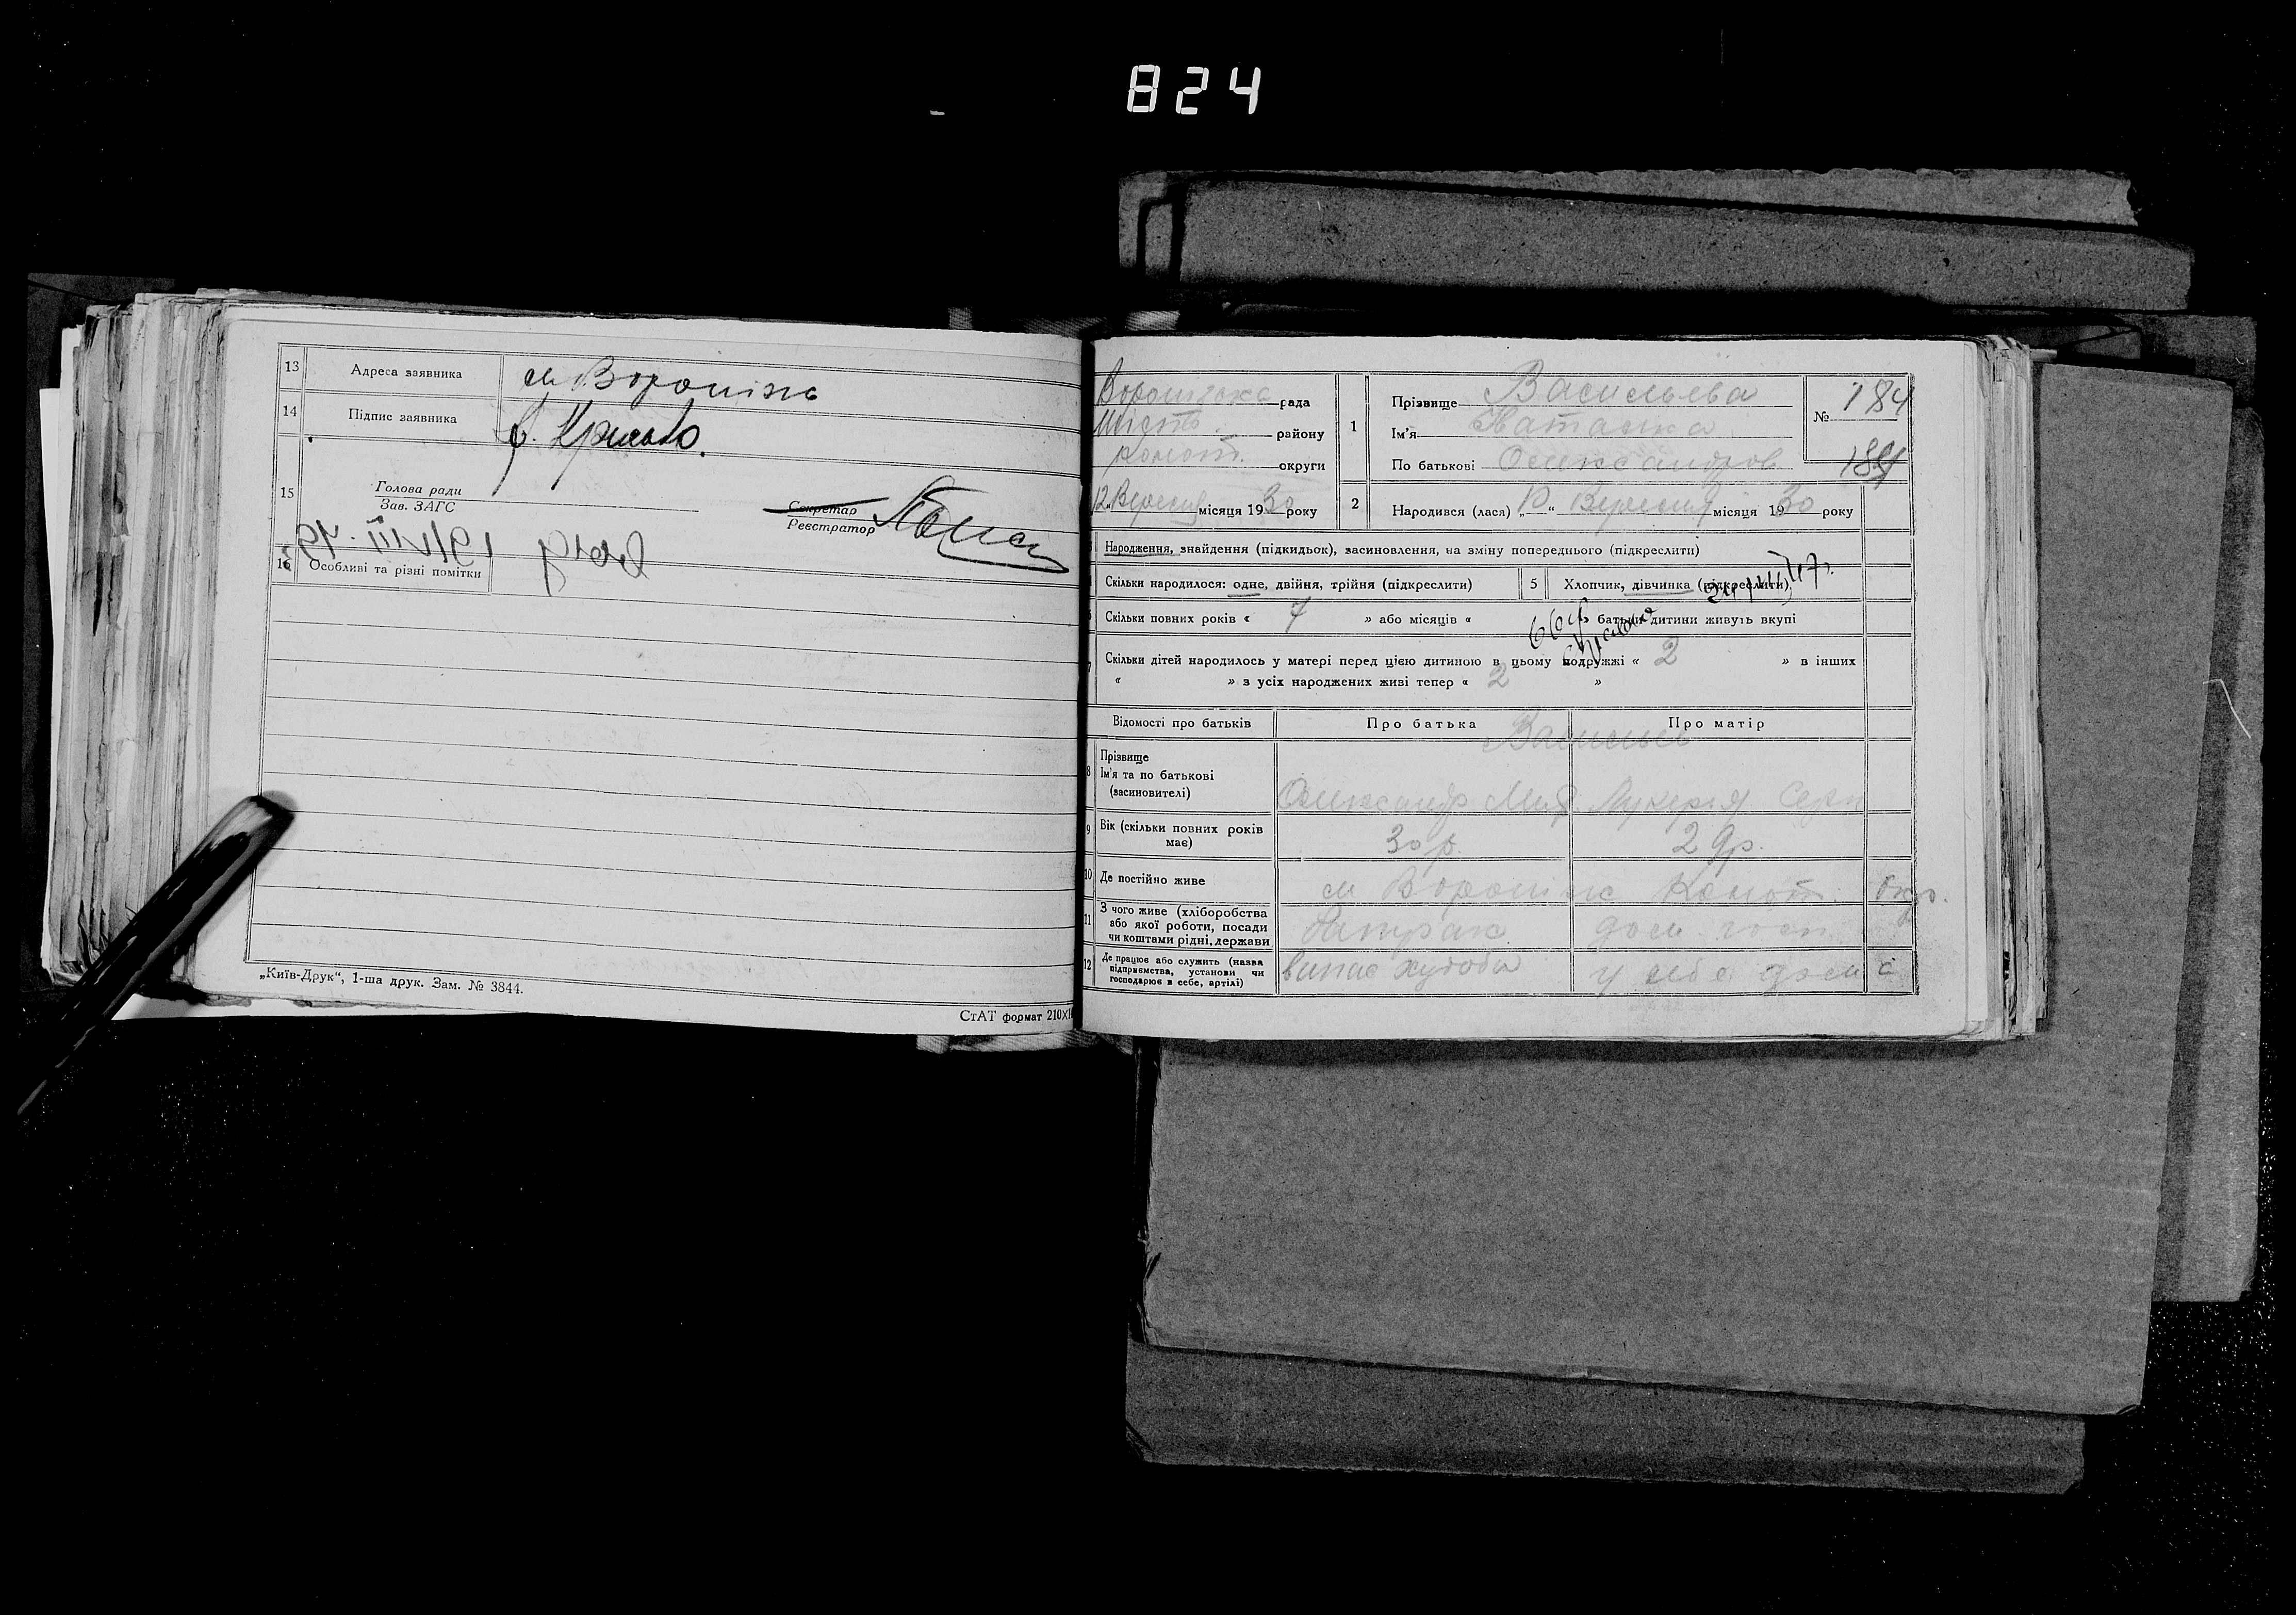 824
13 Адреса заявника м Вороніж
14 Підпис заявника
15 Голова ради
Зав. ЗАГС
Секретар
Реєстратор
16 Особливі та різні помітки
„Київ-Друк“, 1-ша друк. Зам. № 3844.
СтАТ формат 210х
Вороніжська рада
района району
Конот. округи
12 Вересня місяця 1930 року
1 Прізвище Васильєва
Ім'я Наташка
По батькові Олександров
№ 184
184
2 Народився (лася) „10“ Вересня місяця 1930 року
Народження, знайдення (підкидьок), засиновлення, на зміну попереднього (підкреслити)
Скільки народилося: одне, двійня, трійня (підкреслити)
5 Хлопчик, дівчинка (підкреслити)
Скільки повних років « 7 » або місяців « » батьки дитини живуть вкупі
7 Скільки дітей народилось у матері перед цією дитиною в цьому подружжі « 2 » в інших
« » з усіх народжених живі тепер « 2 »
Відомості про батьків Про батька Про матір
8 Прізвище Васильєв
Ім'я та по батькові
(засиновителі) Олександр Лукерія
9 Вік (скільки повних років має) 30 р. 29 р.
10 Де постійно живе м Вороніж Конот. Окр.
11 З чого живе (хліборобства
або якої роботи, посади
чи коштами рідні, держави дом госп
12 Де працює або служить (назва
підприємства, установи чи
господарює в себе, артілі) випас худоби у себе дома